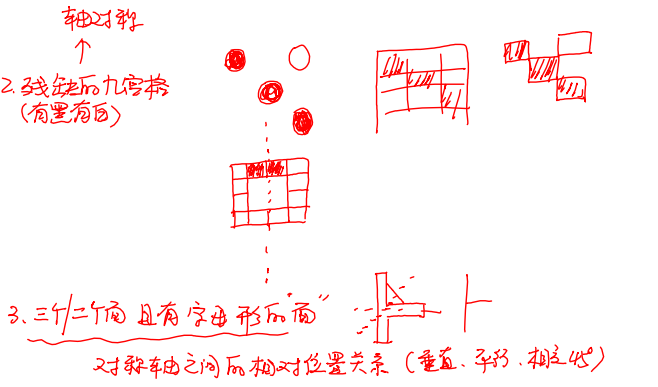 轴对称
2. 残缺的九宫格
(有黑有白)
3. 三个/二个面 且有字母形的"面"
对称轴之间的相对位置关系 (垂直、平行、相交45°)